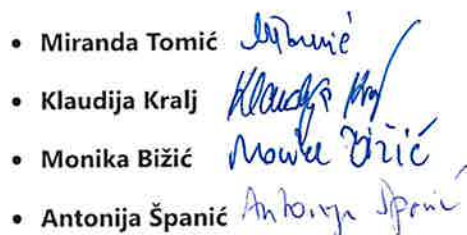 • Miranda Tomić MTomić
• Klaudija Kralj Klaudija Kralj
• Monika Bižić Monika Bižić
• Antonija Španić Antonija Španić